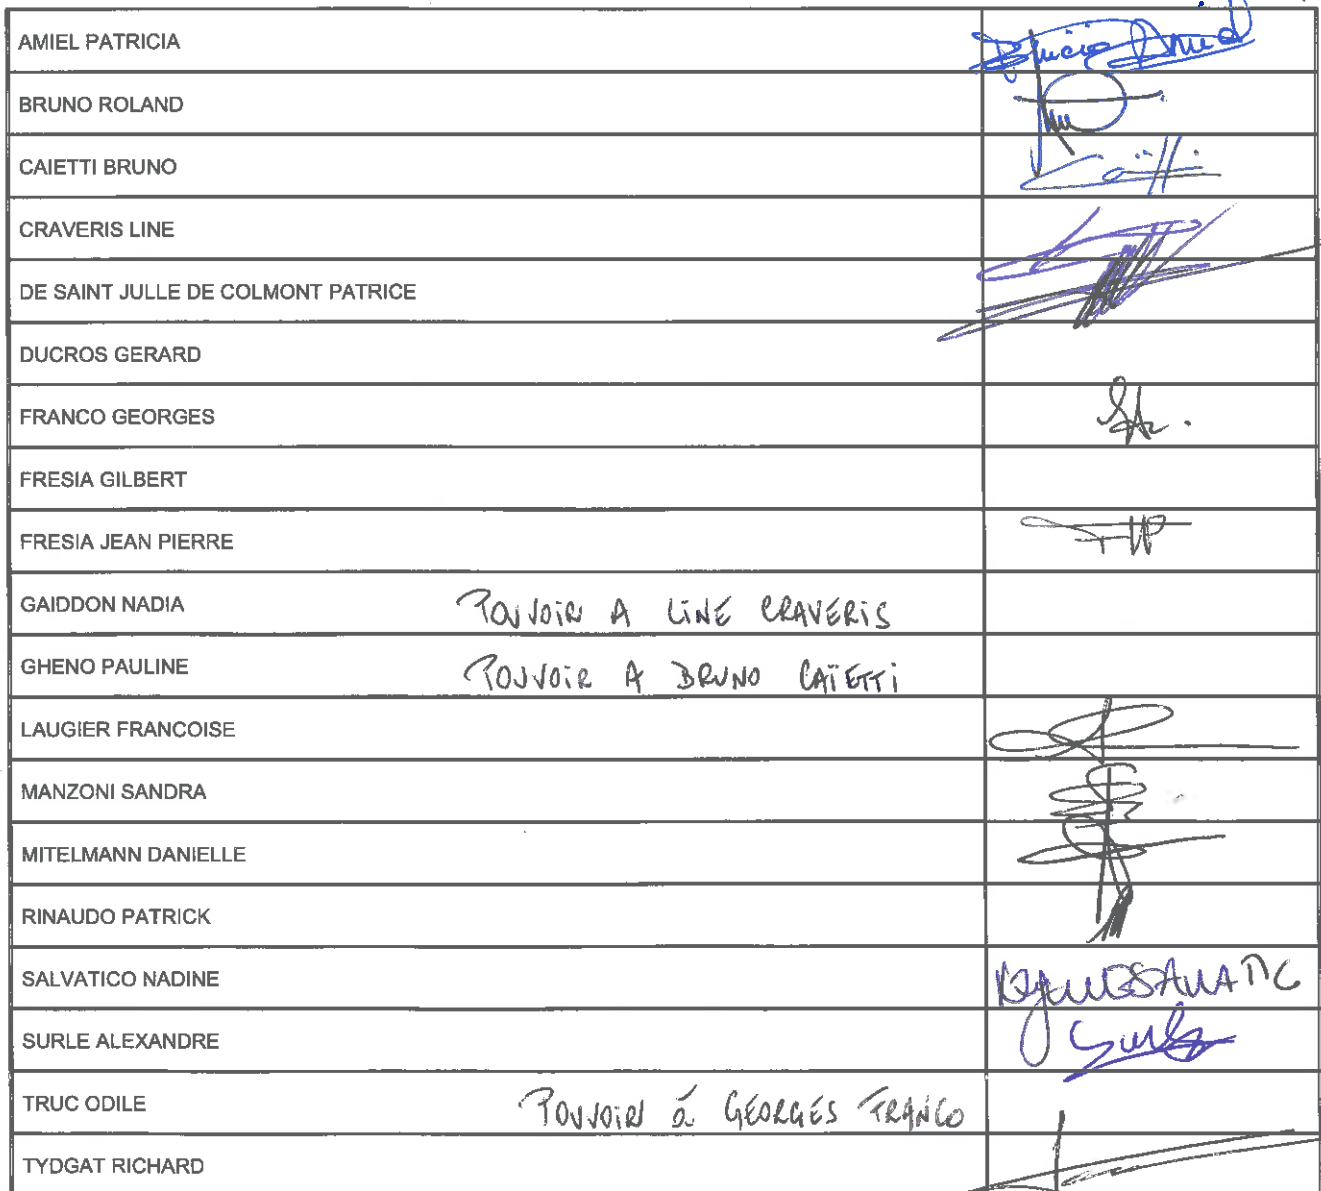 AMIEL PATRICIA Patricia Amiel
BRUNO ROLAND
CAIETTI BRUNO Caïetti
CRAVERIS LINE
DE SAINT JULLE DE COLMONT PATRICE
DUCROS GERARD
FRANCO GEORGES
FRESIA GILBERT
FRESIA JEAN PIERRE
GAIDDON NADIA POUVOIR A LINE CRAVERIS
GHENO PAULINE POUVOIR A BRUNO CAÏETTI
LAUGIER FRANCOISE
MANZONI SANDRA
MITELMANN DANIELLE
RINAUDO PATRICK
SALVATICO NADINE
SURLE ALEXANDRE Surle
TRUC ODILE POUVOIR à GEORGES FRANCO
TYDGAT RICHARD